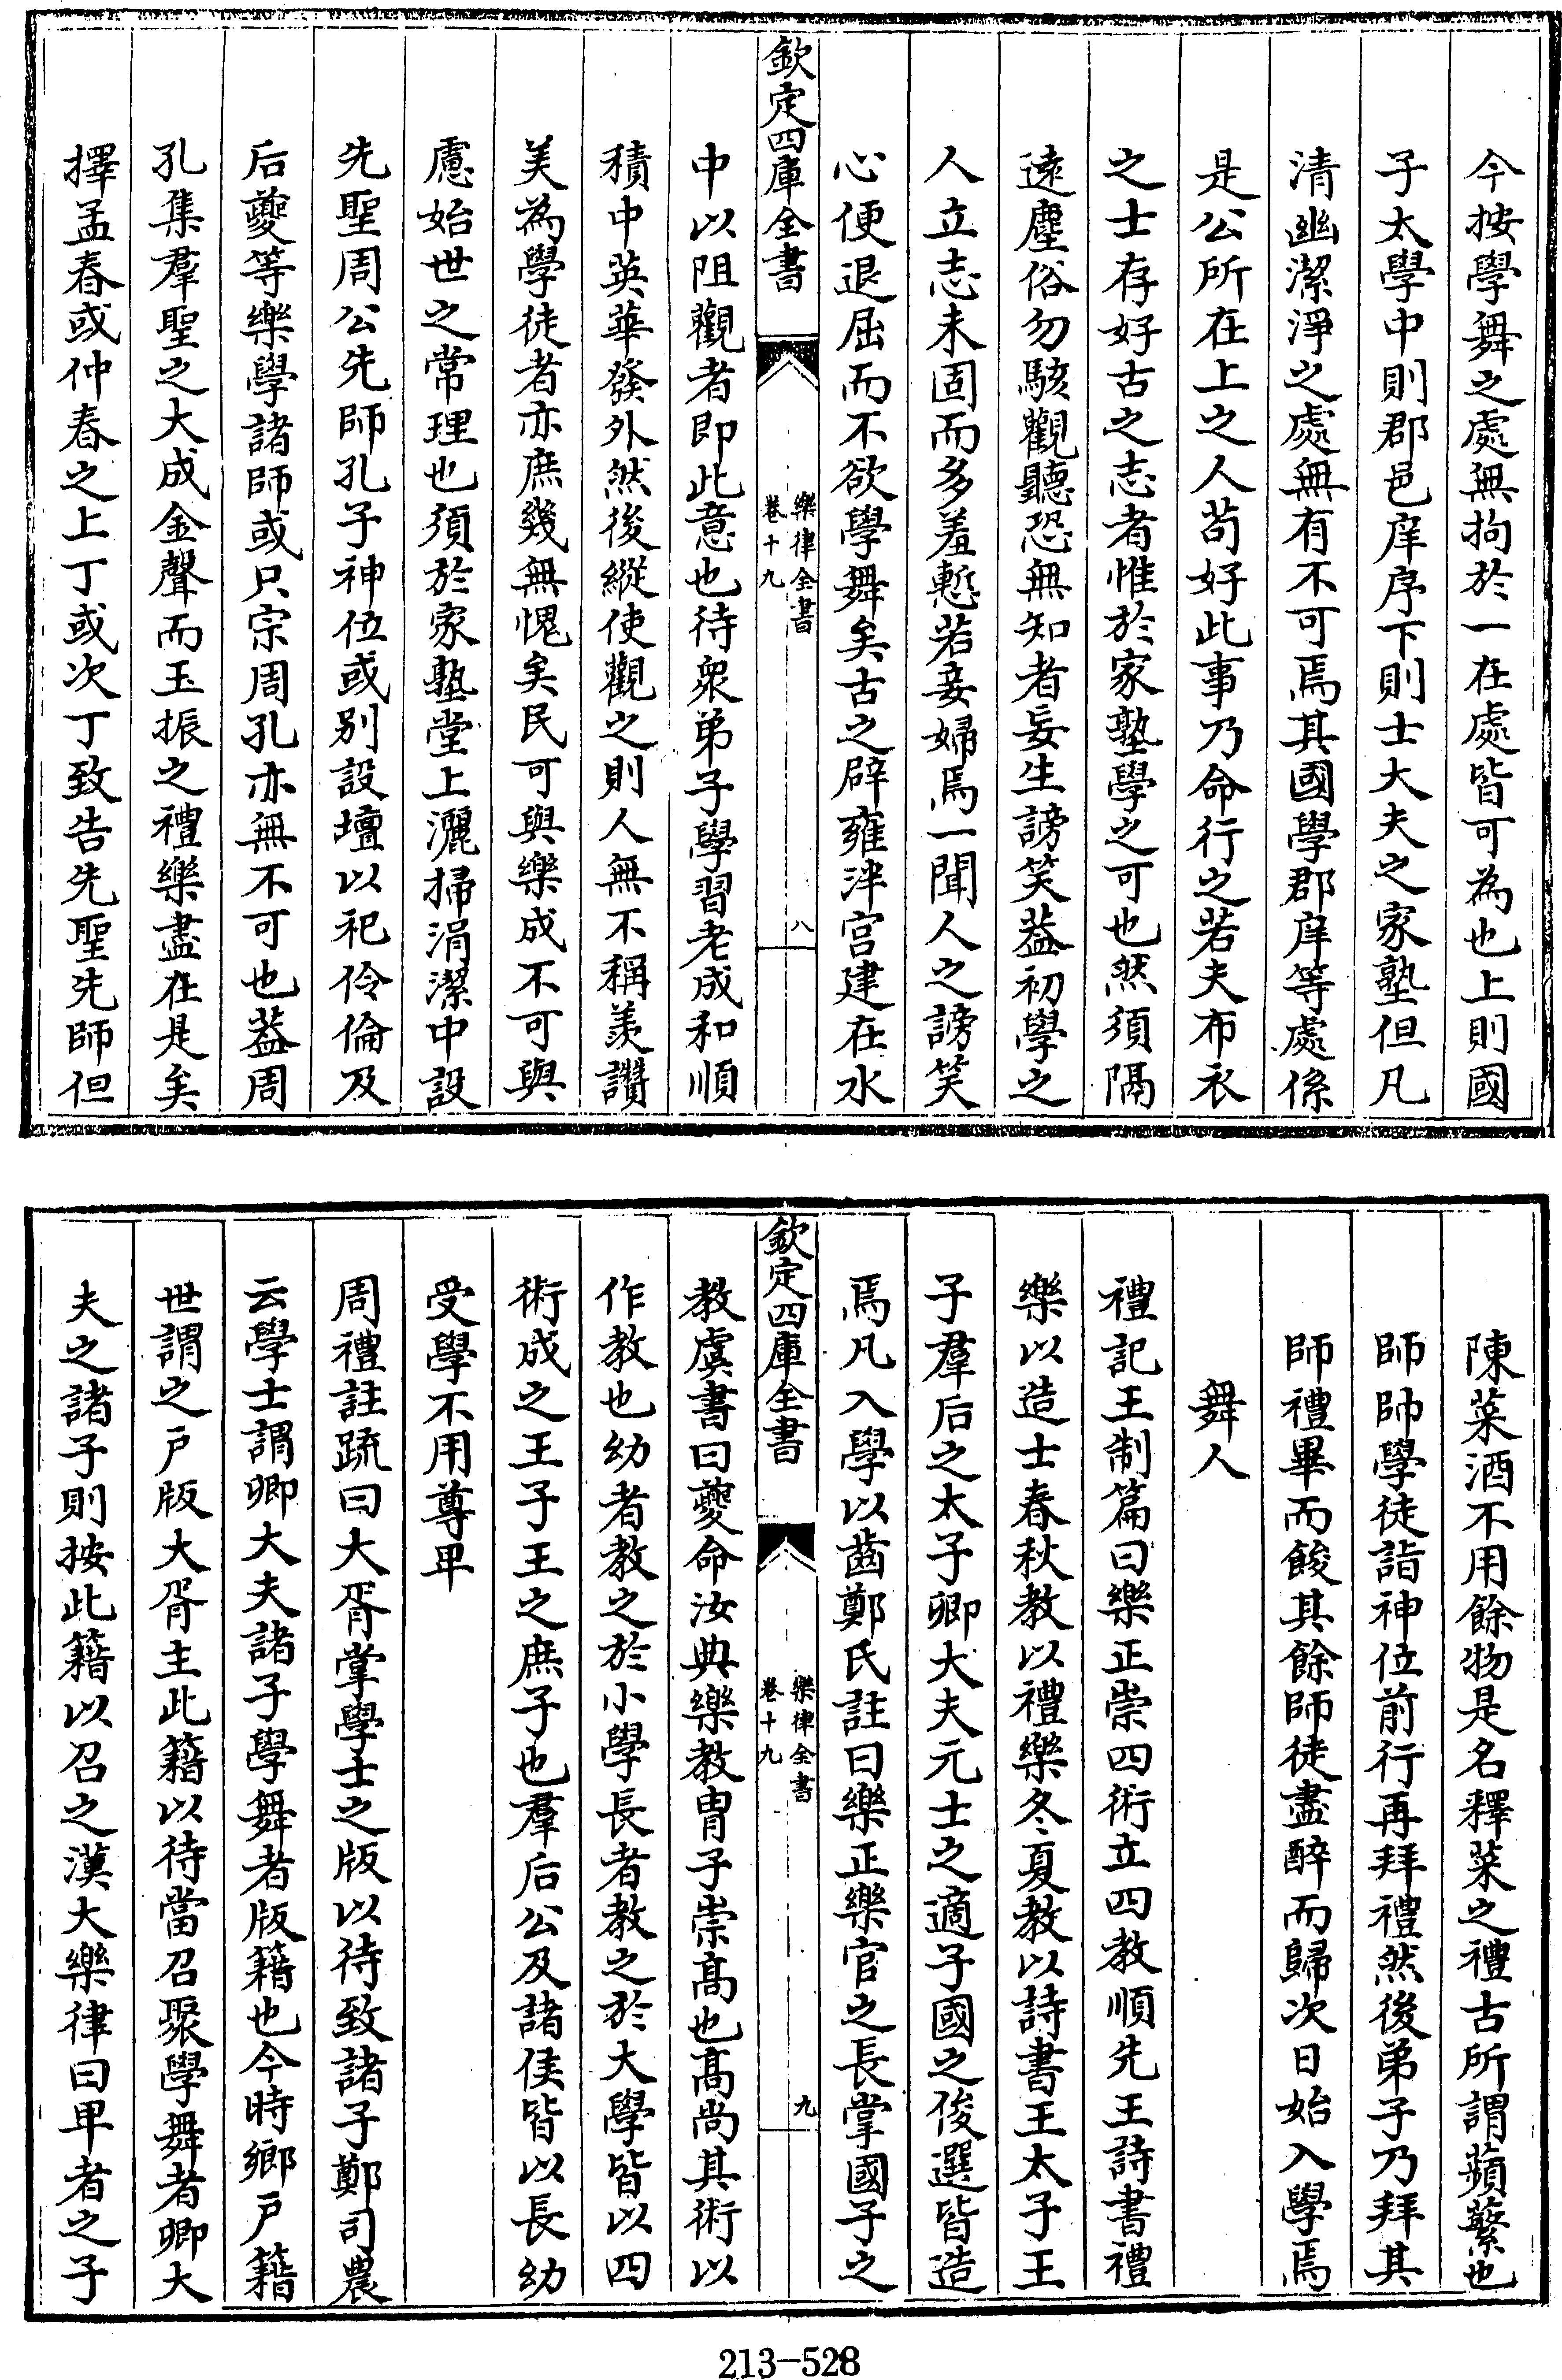 今按學舞之處無拘於一在處皆可為也上則國
子太學中則郡邑庠序下則士大夫之家塾但凡
清幽潔淨之處無有不可焉其國學郡庠等處係
是公所在上之人苟好此事乃命行之若夫布衣
之士存好古之志者惟於家塾學之可也然須隔
遠塵俗勿駭觀聽恐無知者妄生謗笑葢初學之
人立志未固而多羞慙若妾婦焉一聞人之謗笑
心便退屈而不欲學舞矣古之辟雍泮宫建在水
欽定四庫全書
樂律全書
卷十九
八
中以阻觀者即此意也待衆弟子學習老成和順
積中英華發外然後縱使觀之則人無不稱羨讚
美為學徒者亦庶幾無愧矣民可與樂成不可與
慮始世之常理也須於家塾堂上灑掃涓潔中設
先聖周公先師孔子神位或别設壇以祀伶倫及
后夔等樂學諸師或只宗周孔亦無不可也葢周
孔集羣聖之大成金聲而玉振之禮樂盡在是矣
擇孟春或仲春之上丁或次丁致告先聖先師但
陳菜酒不用餘物是名釋菜之禮古所謂蘋蘩也
師帥學徒詣神位前行再拜禮然後弟子乃拜其
師禮畢而餕其餘師徒盡醉而歸次日始入學焉
舞人
禮記王制篇曰樂正崇四術立四教順先王詩書禮
樂以造士春秋教以禮樂冬夏教以詩書王太子王
子羣后之太子卿大夫元士之適子國之俊選皆造
焉凡入學以齒鄭氏註曰樂正樂官之長掌國子之
欽定四庫全書
樂律全書
卷十九
九
教虞書曰夔命汝典樂教胄子崇髙也髙尚其術以
作教也幼者教之於小學長者教之於大學皆以四
術成之王子王之庶子也羣后公及諸侯皆以長幼
受學不用尊卑
周禮註疏曰大胥掌學士之版以待致諸子鄭司農
云學士謂卿大夫諸子學舞者版籍也今時鄉户籍
世謂之户版大胥主此籍以待當召聚學舞者卿大
夫之諸子則按此籍以召之漢大樂律曰卑者之子
213-528